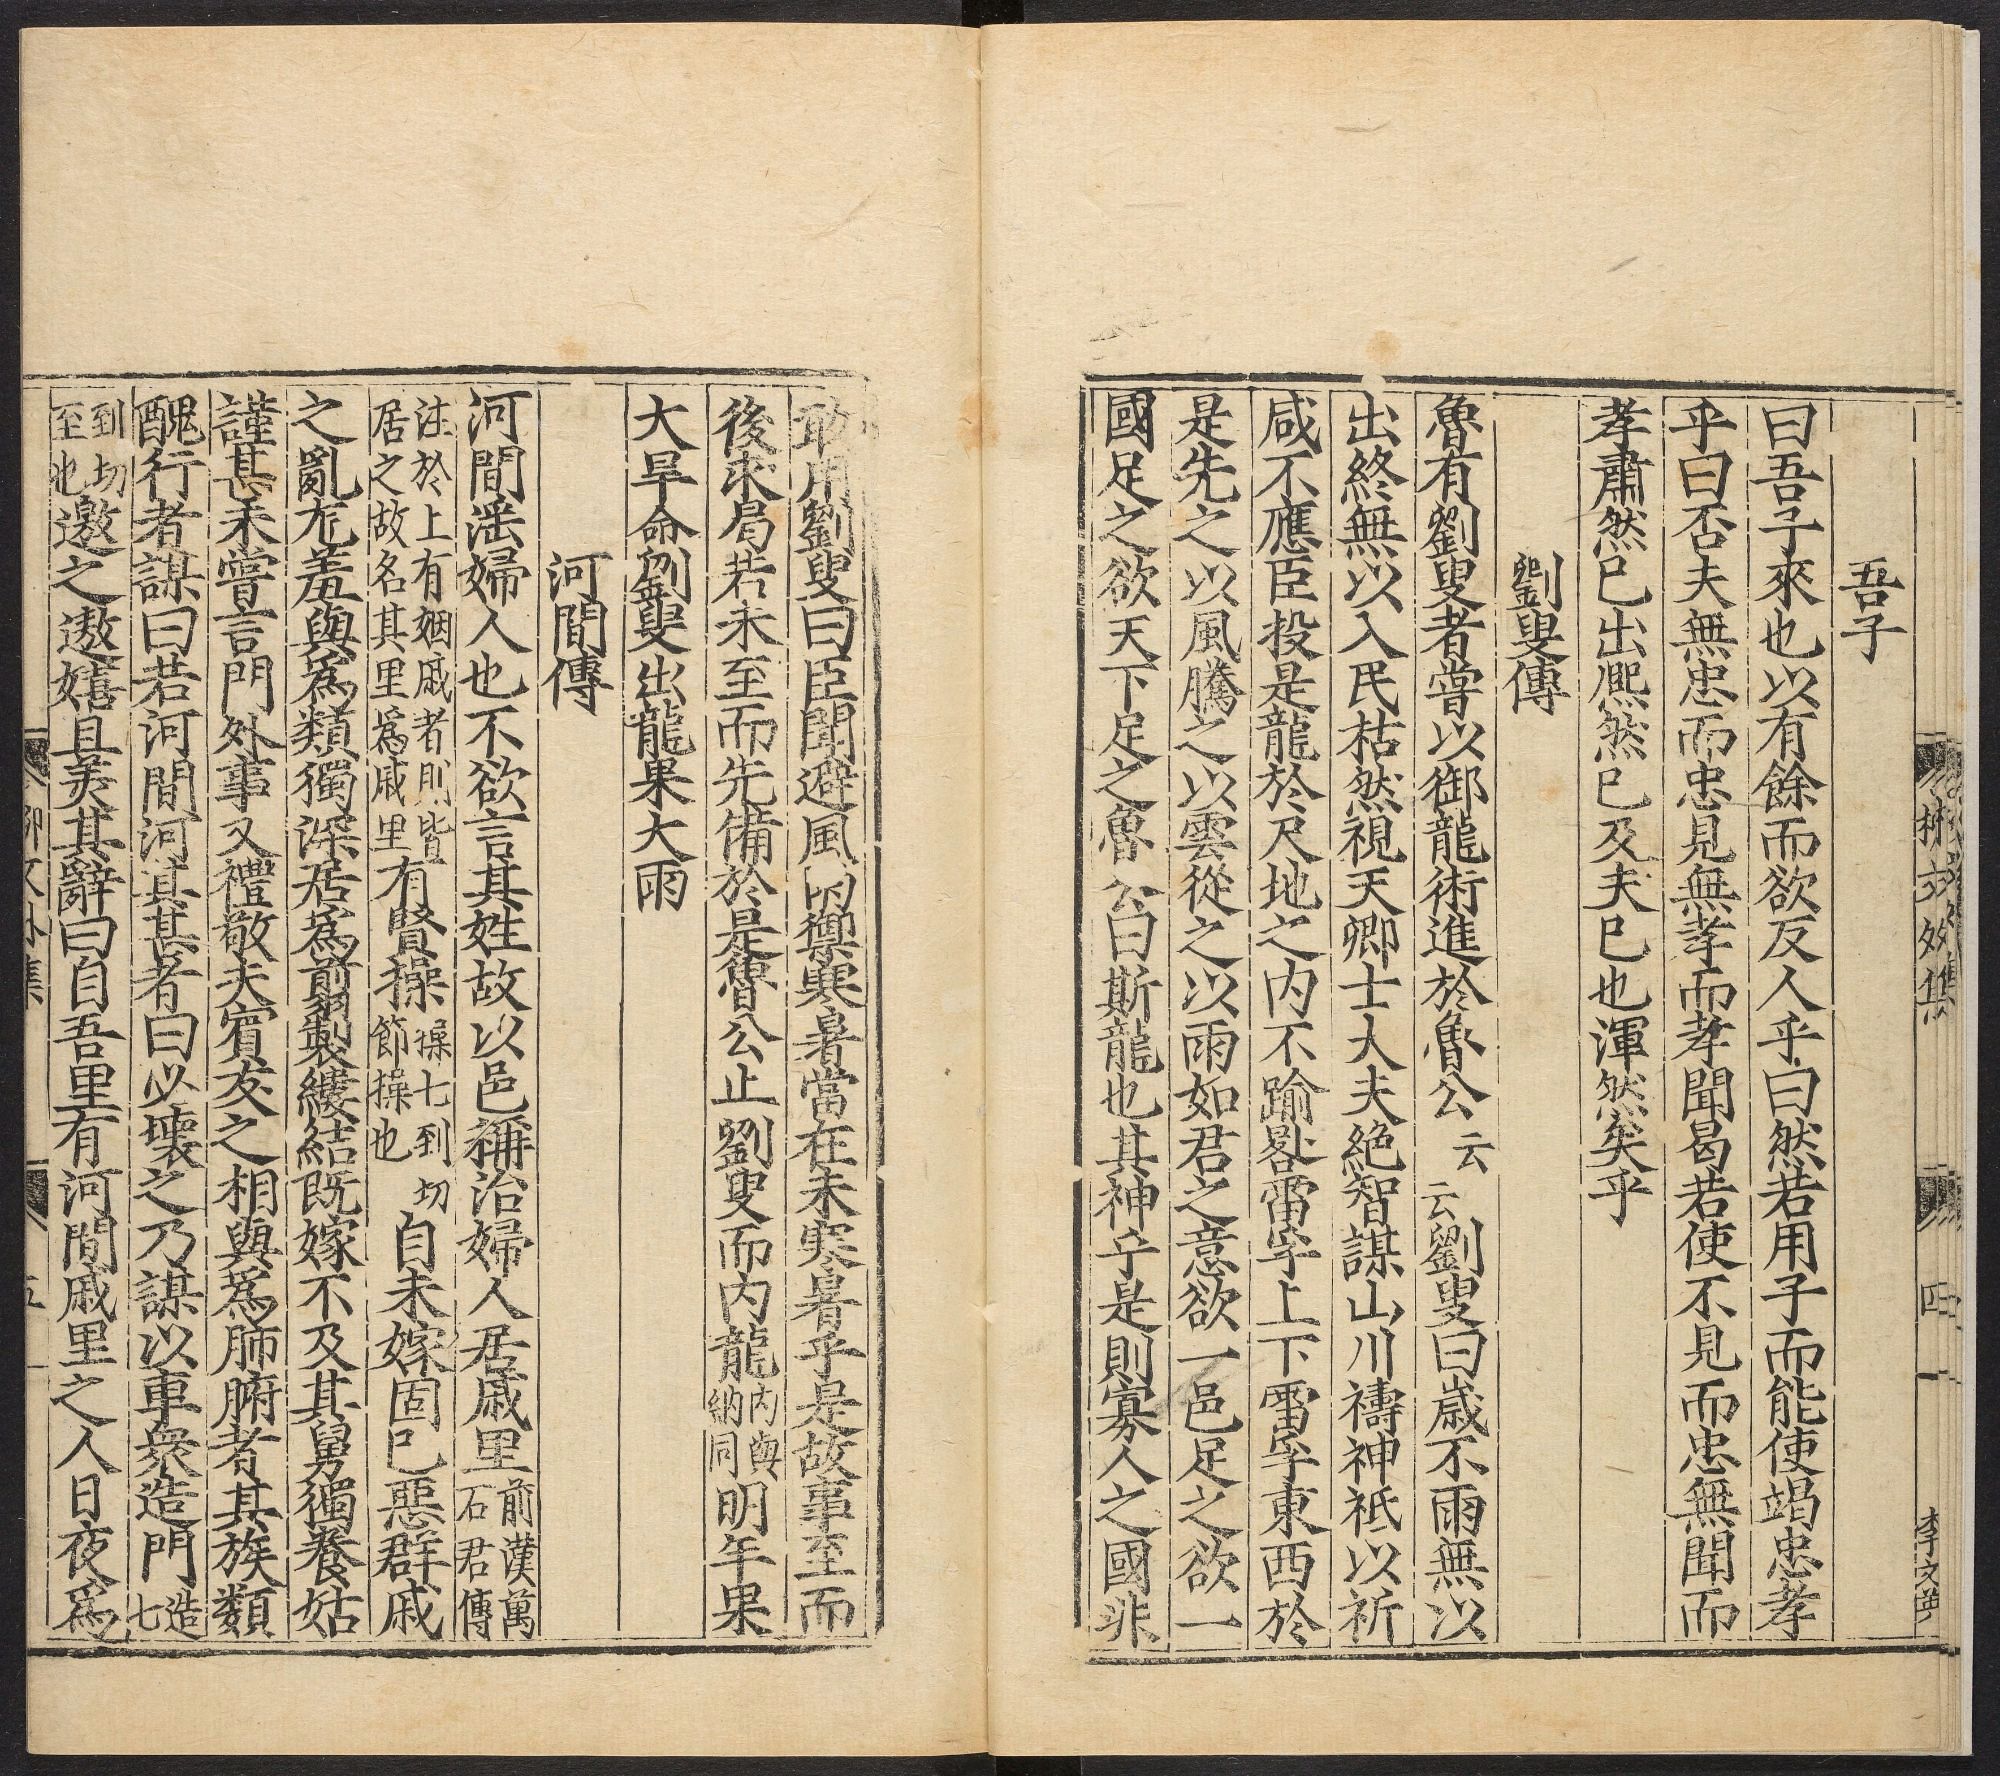 吾子
曰吾子來也以有餘而欲反人乎曰然若用子而能使竭忠孝
乎曰否夫無忠而忠見無孝而孝聞曷若使不見而忠無聞而
孝肅然已出熈然已及夫已也渾然矣乎
劉叟傳
魯有劉叟者嘗以御龍術進於魯公云云劉叟曰歲不雨無以
出終無以入民枯然視天卿士大夫絶智謀山川禱神祇以祈
咸不應臣投是龍於尺地之内不踰晷雷孚上下雷孚東西於
是先之以風騰之以雲從之以雨如君之意欲一邑足之欲一
國足之欲天下足之魯公曰斯龍也其神乎是則寡人之國非
柳文外集
四
李文
敢用劉叟曰臣聞避風雨禦寒暑當在未寒暑乎是故事至而
後求曷若未至而先備於是魯公止劉叟而内龍内與納同明年果
大旱命劉叟出龍果大雨
河間傳
河間淫婦人也不欲言其姓故以邑稱治婦人居戚里前漢萬石君傳
注於上有姻戚者則皆居之故名其里爲戚里有賢操操七到切節操也自未嫁固已惡群戚
之亂尨羞與爲類獨深居爲翦製縷結既嫁不及其舅獨養姑
謹甚未嘗言門外事又禮敬夫賓友之相與爲肺腑者其族類
醜行者謀曰若河間何其甚者曰必壞之乃謀以車衆造門造七
到切至也邀之遨嬉且美其辭曰自吾里有河間戚里之人日夜爲
柳文外集
五